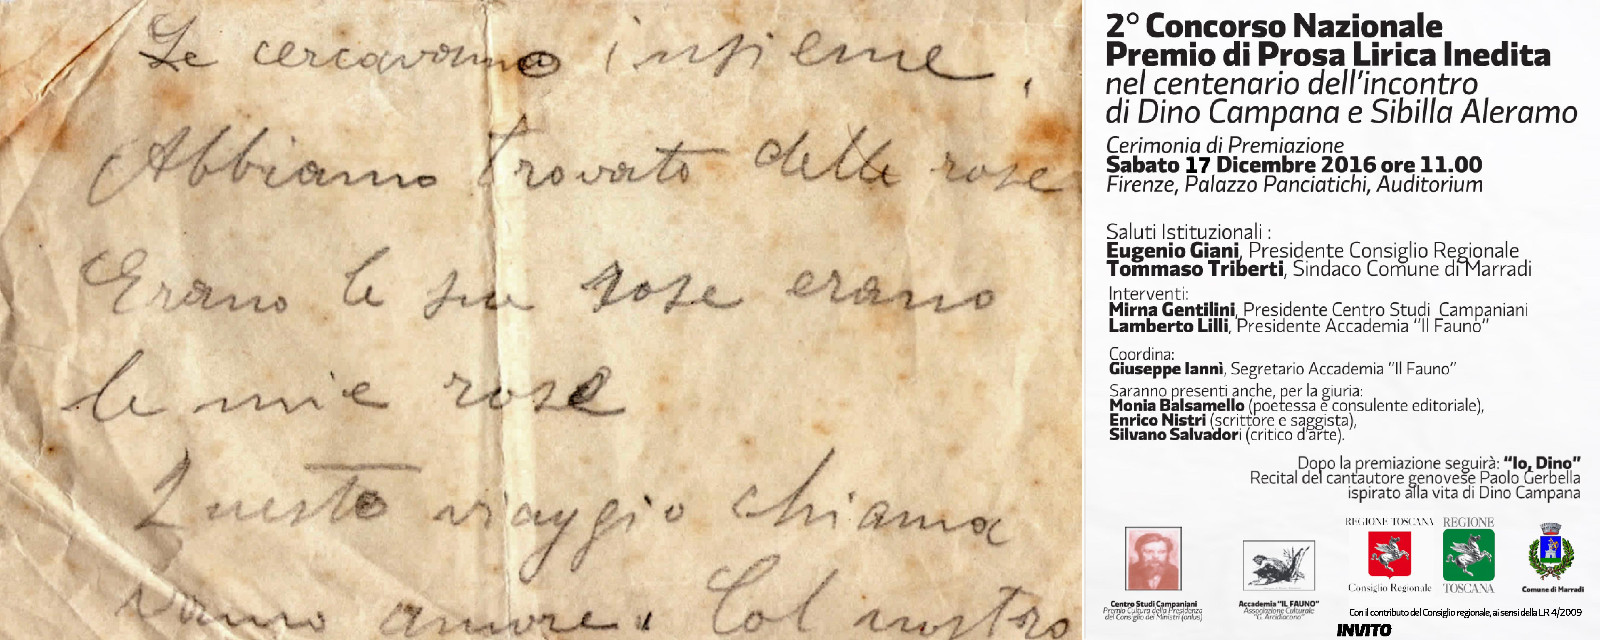 Le cercavamo insieme.
Abbiamo trovato delle rose
Erano le sue rose erano
le mie rose
Questo viaggio chiama
vamo amore. Col nostro
2° Concorso Nazionale
Premio di Prosa Lirica Inedita
nel centenario dell'incontro
di Dino Campana e Sibilla Aleramo
Cerimonia di Premiazione
Sabato 17 Dicembre 2016 ore 11.00
Firenze, Palazzo Panciatichi, Auditorium
Saluti Istituzionali :
Eugenio Giani, Presidente Consiglio Regionale
Tommaso Triberti, Sindaco Comune di Marradi
Interventi:
Mirna Gentilini, Presidente Centro Studi Campaniani
Lamberto Lilli, Presidente Accademia "Il Fauno"
Coordina:
Giuseppe Iannì, Segretario Accademia "Il Fauno"
Saranno presenti anche, per la giuria:
Monia Balsamello (poetessa e consulente editoriale),
Enrico Nistri (scrittore e saggista),
Silvano Salvadori (critico d'arte).
Dopo la premiazione seguirà: "Io, Dino"
Recital del cantautore genovese Paolo Gerbella
ispirato alla vita di Dino Campana
REGIONE TOSCANA
Consiglio Regionale
REGIONE
TOSCANA
Comune di Marradi
Centro Studi Campaniani
Premio Cultura della Presidenza
del Consiglio dei Ministri (onlus)
Accademia "IL FAUNO"
Associazione Culturale
"G. Arcidiacono"
Con il contributo del Consiglio regionale, ai sensi della LR 4/2009
INVITO